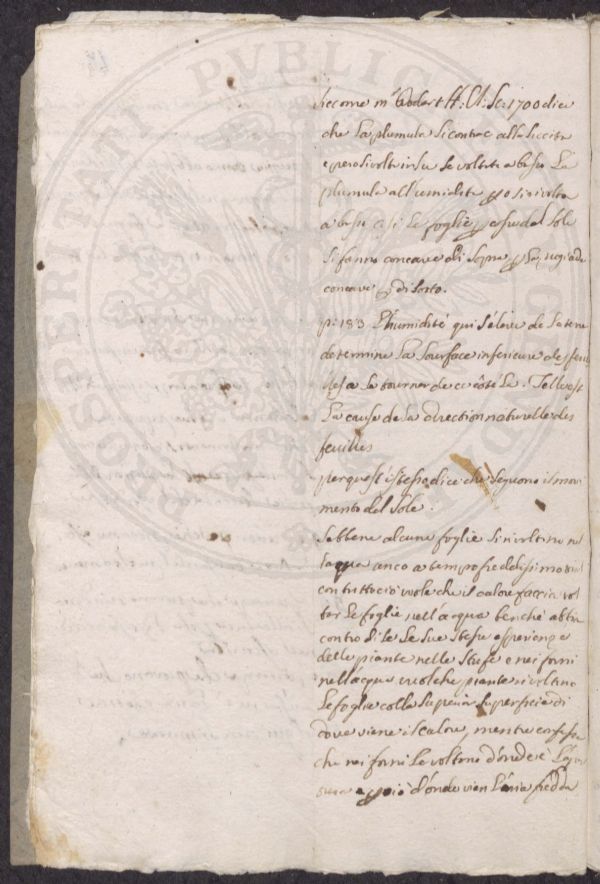 siccome mr Dodart H: Ac: Sc: 1700 dice
che la plumula si contrae alla siccita
e pero si volta in su se voltata a basso la
plumula all'umidita si rivolta
a basso cosi le foglie del Sole
si fanno concave di sopra la rugiada
concave di sotto.
p: 183 L'humidité qui s'éleve de la terre
determine la sourface inferieure des feuil
les a se tourner de ce côté là. Telle est
la cause de la direction naturelle des
feuilles
per quest'istesso dice che seguono il movi
mento del Sole.
Sebbene alcune foglie si rivoltano nel
l'aqua anco a tempo freddissimo
con tuttociò vuole che il calore faccia vol
tar le foglie nell'acqua benché abbia
contro di se le sue stesse esperienze
delle piante nelle stufe e nei forni
nell'acqua vuol che piante rivoltano
le foglie colla superior superficie di
dove viene il calore, mentre confessa
che nei forni le voltano d'onde è
d'onde vien l'aria fredda
PROSPERITATI PVBLICAE AVGENDAE